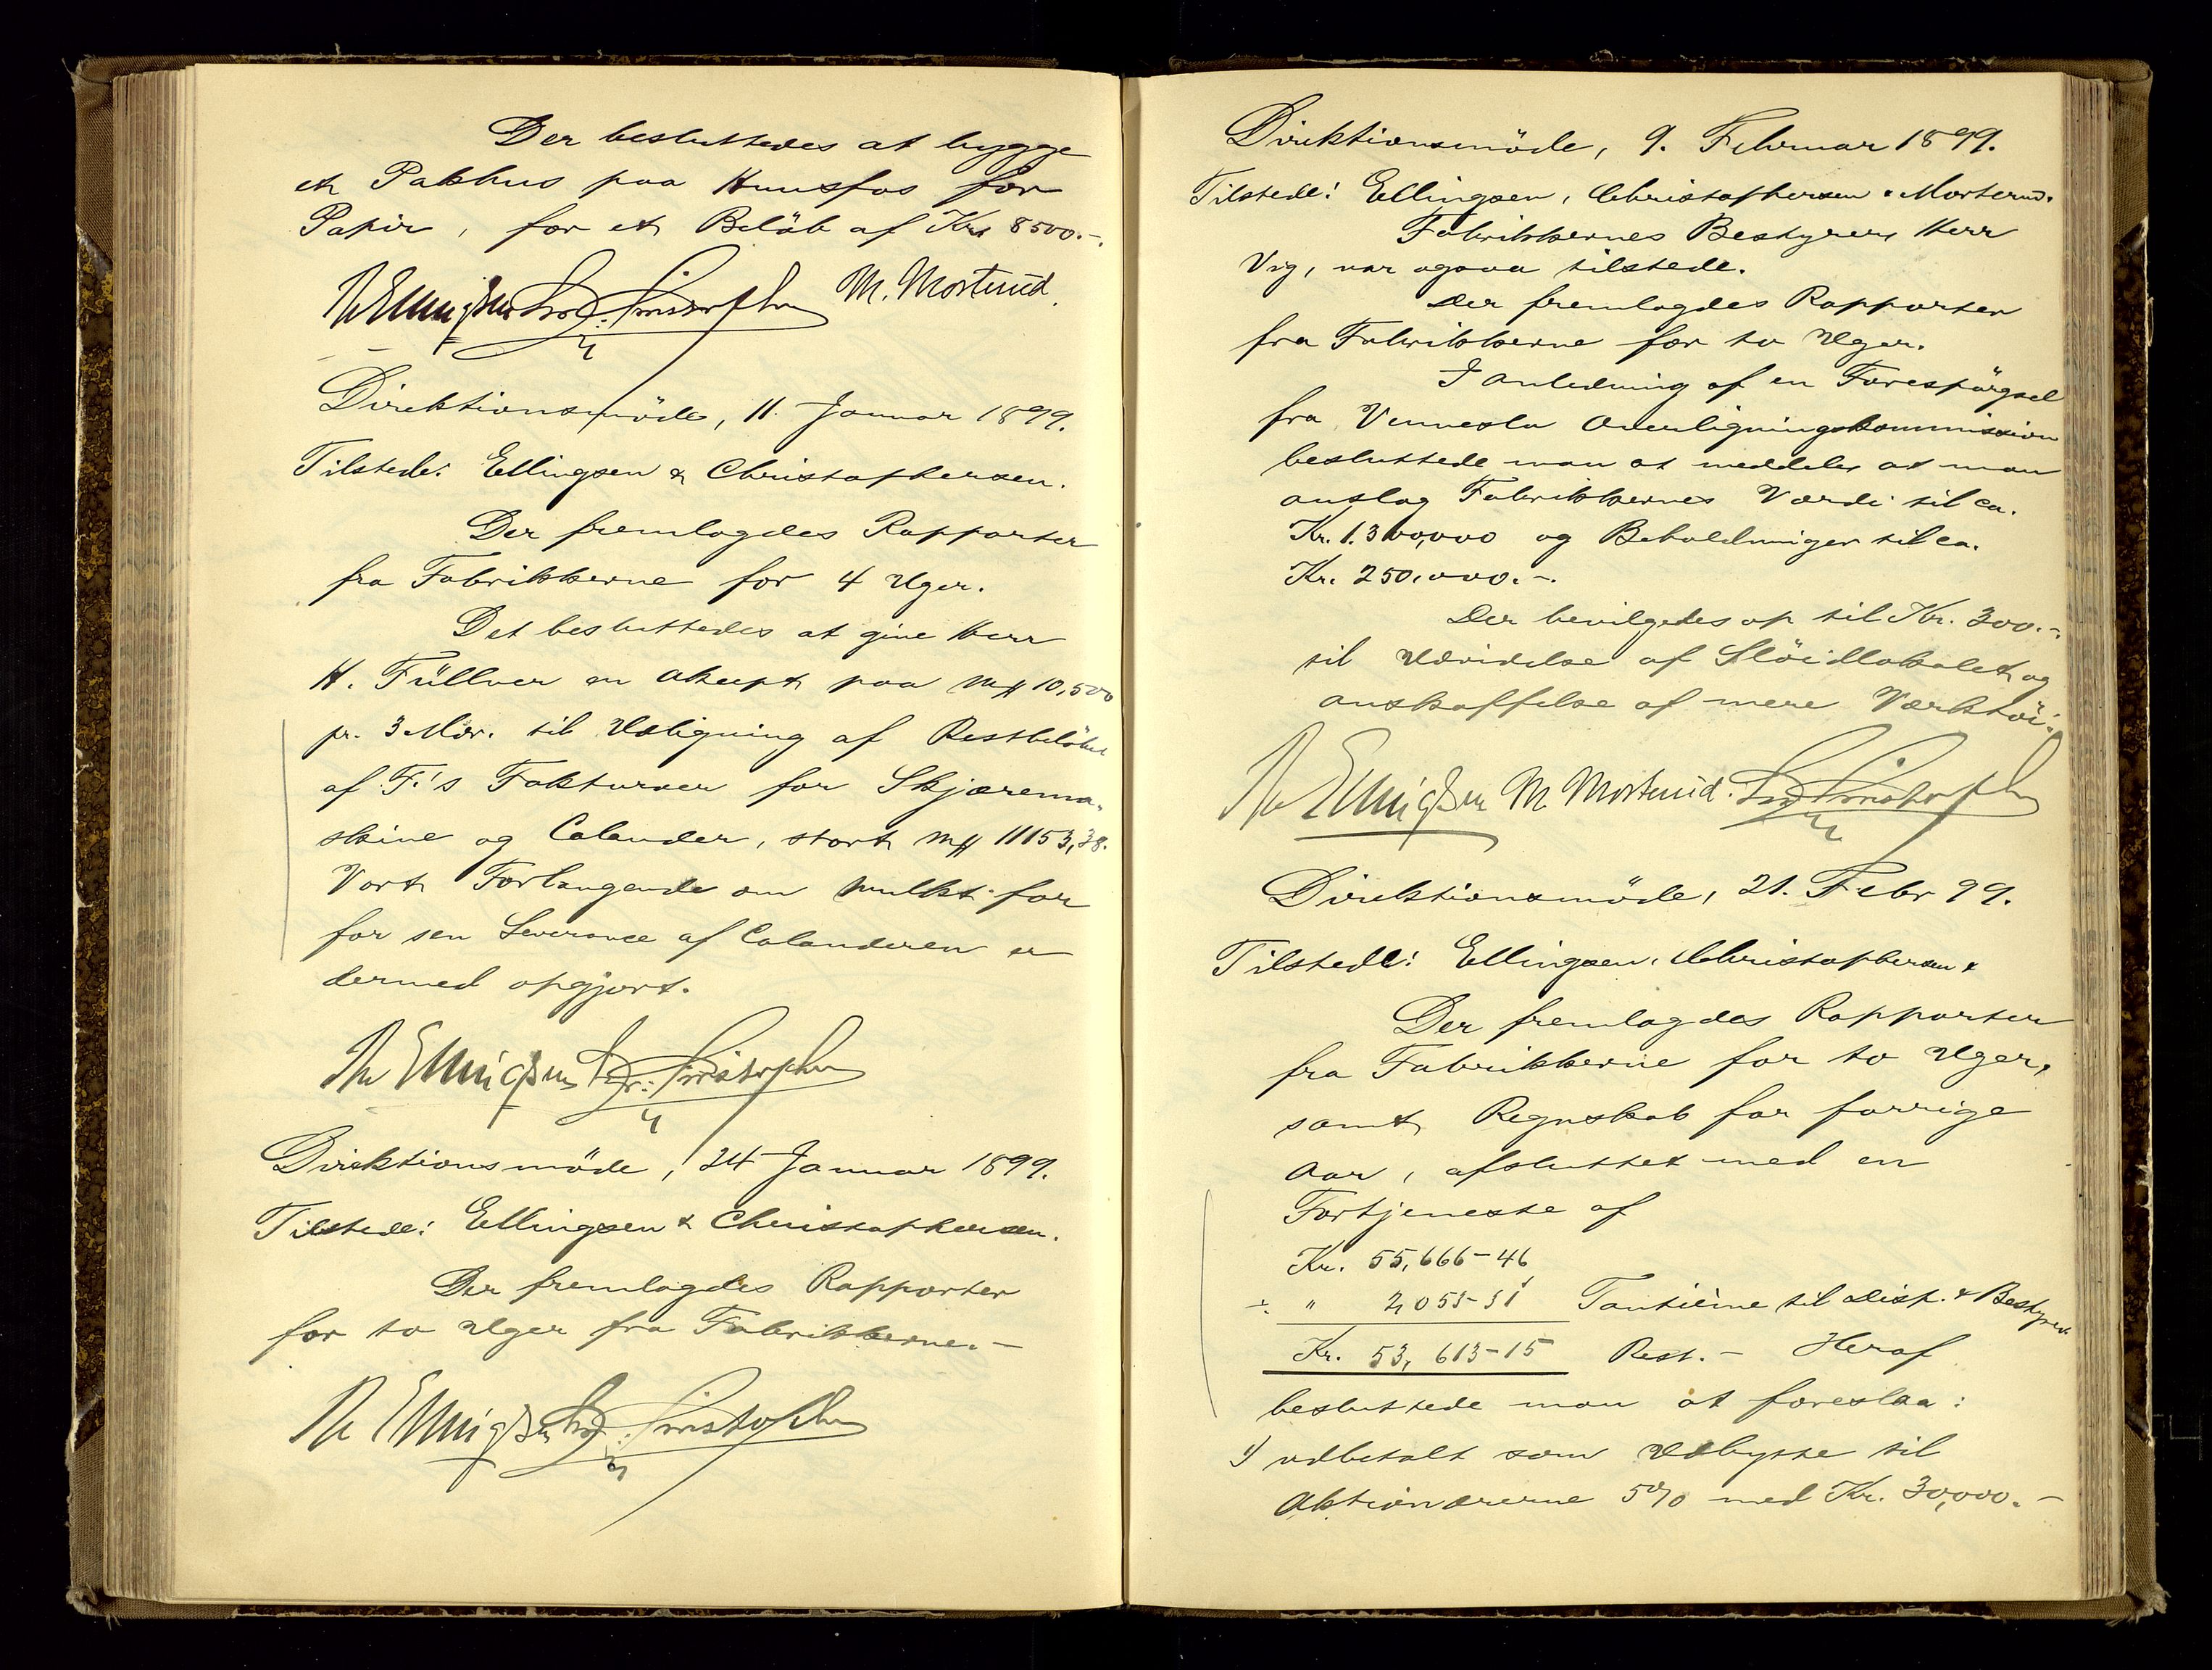 Der besluttedes at bygge
et Pakhus paa Hunsfos for
Papir, for et Beløb af Kr. 8500.-.
N Ellingsen Chr. Christophersen M. Mosterud.
Direktionsmöde, 11. Januar 1899.
Tilstede: Ellingsen & Christophersen.
Der fremlagdes Rapporter
fra Fabrikkerne for 4 Uger.
Det besluttedes at give Herr
H. Füllner en Akcept paa M 10,500
pr. 3 Mdr. til Udligning af Restbelöbet
af F.'s Fakturaer for Skjærema-
skine og Calander, stort M 11153,38.
Vort Forlangende om Mulkt for
for sen Leverance af Calanderen er
dermed opgjort.
N Ellingsen Chr. Christophersen
Direktionsmöde, 24 Januar 1899.
Tilstede: Ellingsen & Christophersen.
Der fremlagdes Rapporter
for to Uger fra Fabrikkerne. -
N Ellingsen Chr. Christophersen
Direktionsmöde, 9. Februar 1899.
Tilstede: Ellingsen, Christophersen & Mosterud.
Fabrikkernes Bestyrer, Herr
Vig, var ogsaa tilstede.
Der fremlagdes Rapporter
fra Fabrikkerne for to Uger.
I Anledning af en Forespörgsel
fra Vennesla Overligningskommission
besluttede man at meddele, at man
anslog Fabrikkernes Værdi til ca.
Kr. 1.300,000 og Beholdninger til ca.
Kr. 250.000.-.
Der bevilgedes op til Kr. 300.-.
til Udvidelse af Slöidlokalet og
anskaffelse af mere Værktöi.
N Ellingsen M. Mosterud. Chr. Christophersen
Direktionsmöde, 21. Febr 99.
Tilstede: Ellingsen, Christophersen &
Der fremlagdes Rapporter
fra Fabrikkerne for to Uger,
samt Regnskab for forrige
Aar, afsluttet med en
Fortjeneste af
Kr. 55,666-46
÷ " 2,053-31 Tantième til Disp. & Bestyrer
Kr. 53,613-15 Rest.- Heraf
besluttede man at foreslaa:
1) udbetalt som Udbytte til
Aktionærerne 5% med Kr. 30,000.-